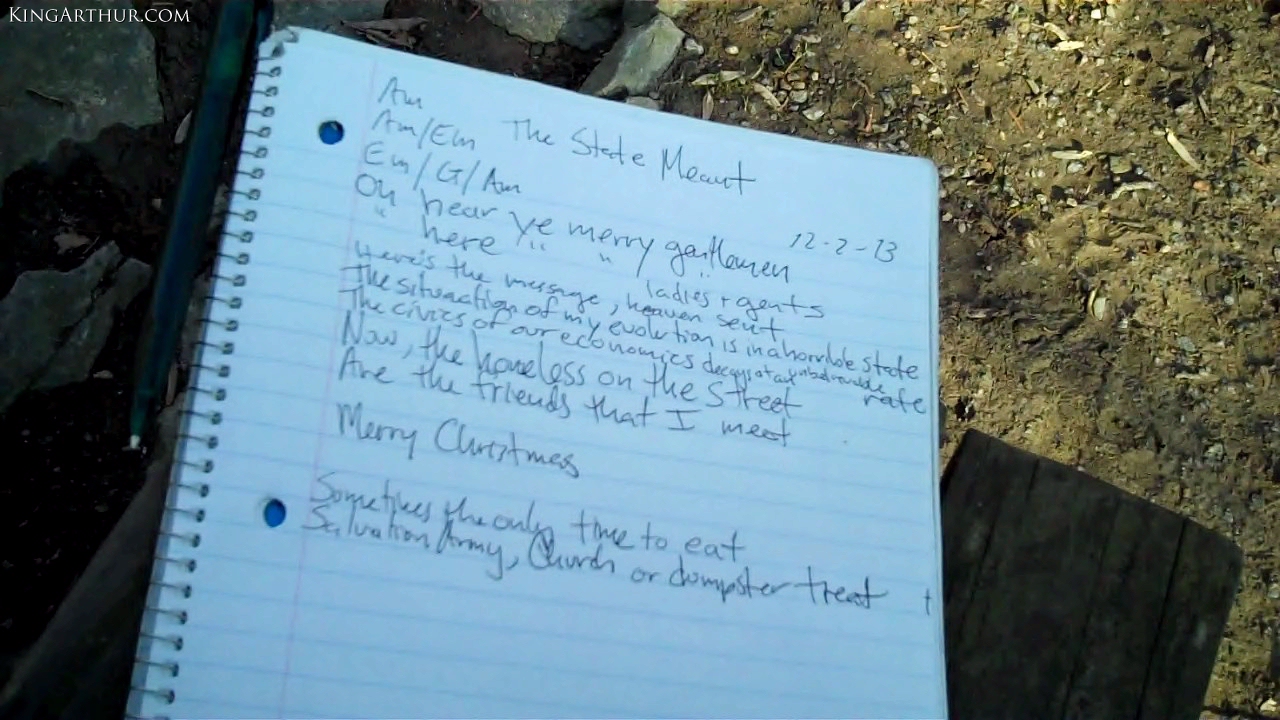 KingArthur.com
Am
Am/Em The State Meant
Em/G/Am
12-2-13
Oh hear ye merry gentlemen
" here " " ladies + gents
Here's the message, heaven sent
The situation of my evolution is in a horrible state
The civics of our economics decays at an unbelievable rate
Now, the homeless on the street
Are the friends that I meet
Merry Christmas
Sometimes the only time to eat
Salvation Army, Church or dumpster treat